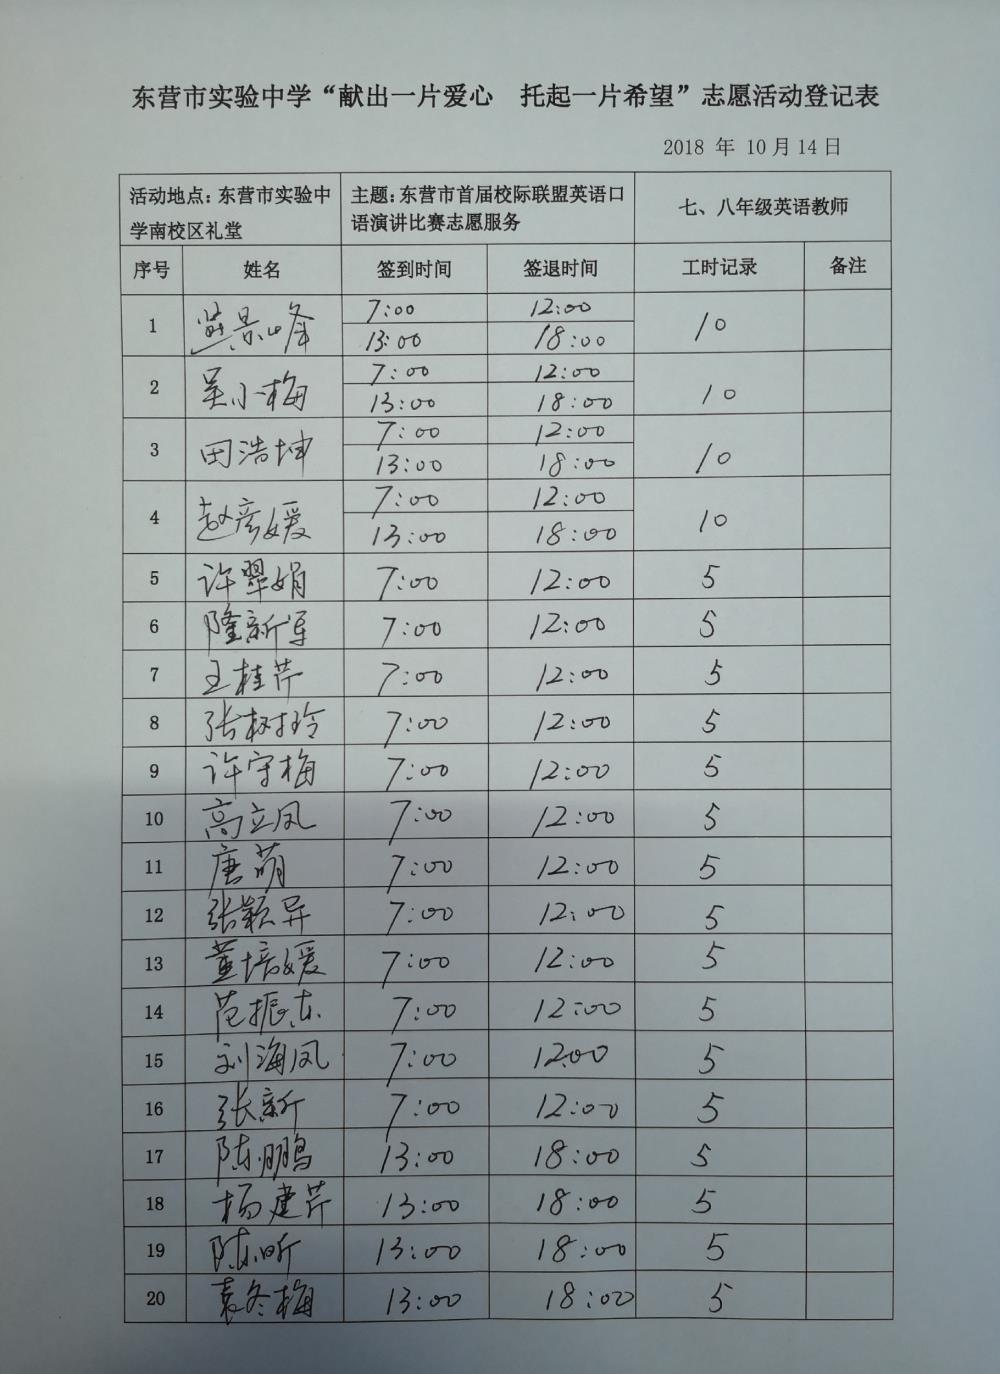 东营市实验中学“献出一片爱心 托起一片希望”志愿活动登记表
2018 年 10 月 14 日
活动地点：东营市实验中学南校区礼堂 主题：东营市首届校际联盟英语口语演讲比赛志愿服务 七、八年级英语教师
序号 姓名 签到时间 签退时间 工时记录 备注
1 景峰 7:00 12:00 10
13:00 18:00
2 吴小梅 7:00 12:00 10
13:00 18:00
3 田浩坤 7:00 12:00 10
13:00 18:00
4 赵彦媛 7:00 12:00 10
13:00 18:00
5 许翠娟 7:00 12:00 5
6 隆新军 7:00 12:00 5
7 王桂芹 7:00 12:00 5
8 张树玲 7:00 12:00 5
9 许守梅 7:00 12:00 5
10 高立凤 7:00 12:00 5
11 唐萌 7:00 12:00 5
12 张颖异 7:00 12:00 5
13 董培媛 7:00 12:00 5
14 范振东 7:00 12:00 5
15 刘海凤 7:00 12:00 5
16 张新 7:00 12:00 5
17 陈鹏 13:00 18:00 5
18 杨建芹 13:00 18:00 5
19 陈昕 13:00 18:00 5
20 袁冬梅 13:00 18:00 5